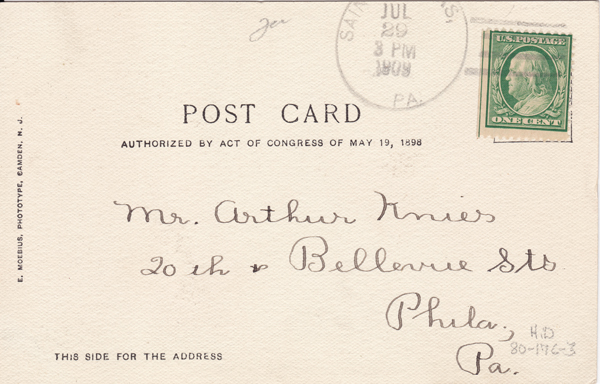 JUL
29
3 PM
1909
PA.
U.S. POSTAGE
ONE CENT
POST CARD
AUTHORIZED BY ACT OF CONGRESS OF MAY 19, 1898
E. MOEBIUS, PHOTOTYPE, CAMDEN, N. J.
Mr. Arthur Knies
20th & Bellevue Sts.
Phila.,
Pa.
H.D
80-176-3
THIS SIDE FOR THE ADDRESS